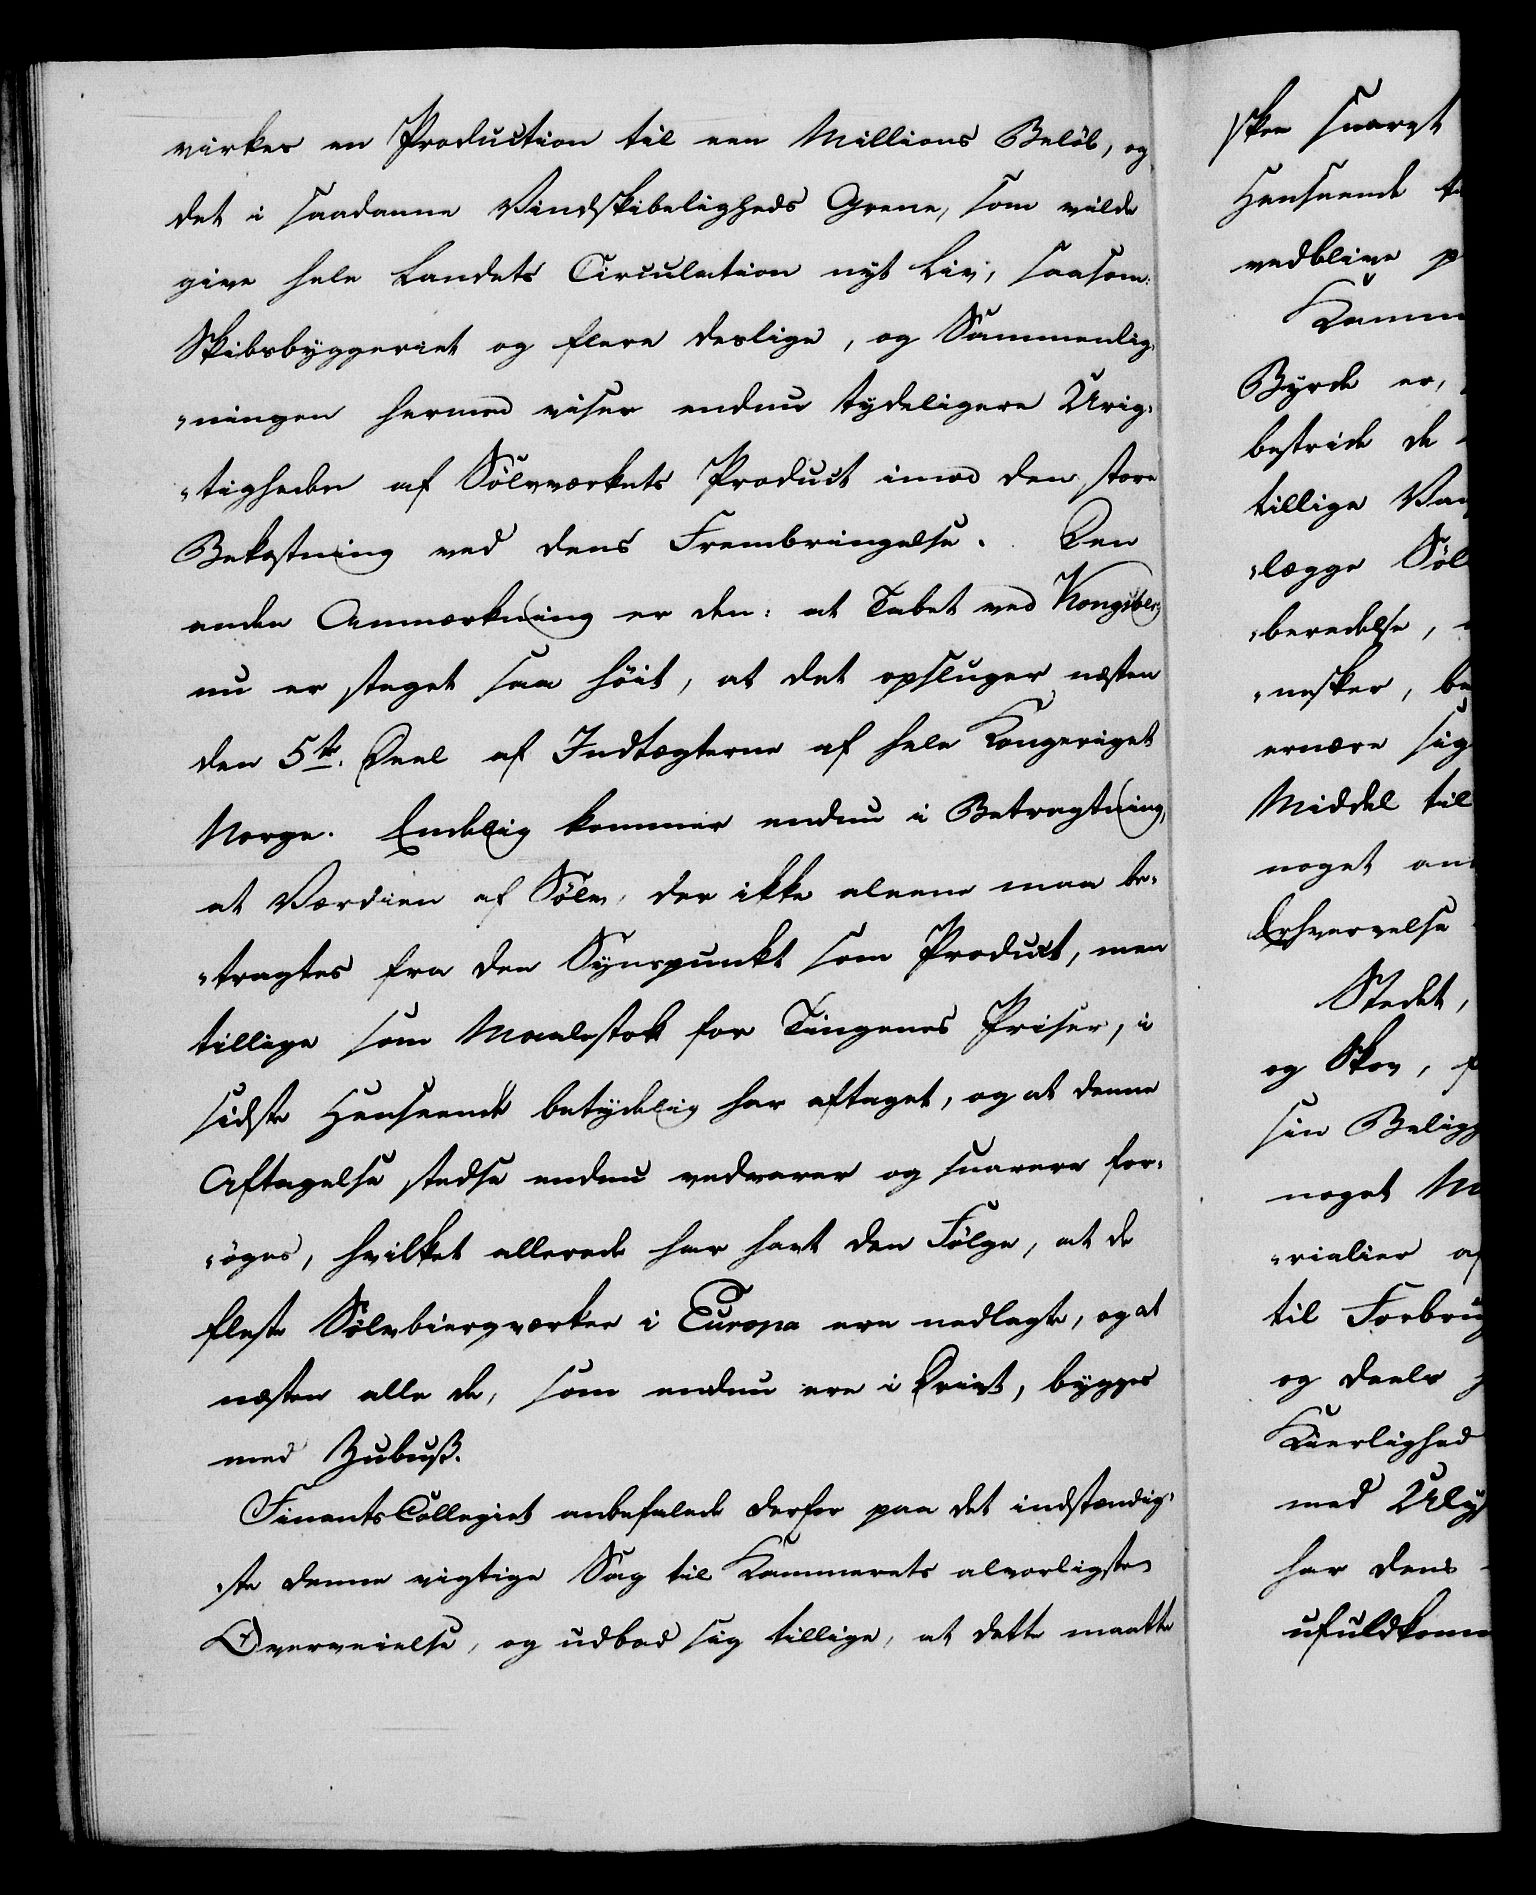 virkes en Production til een Millions Beløb, og
det i saadanne Vindskibeligheds Grene, som vilde
give hele Landets Circulation nyt Liv, saasom
Skibsbyggeriet og flere deslige, og Sammenlig-
"ningen hermed viser endnu tydeligere Urig-
"tigheden af Sølvværkets Product imod den store
Bekostning ved dens Frembringelse. Den
anden Anmærkning er den: at Tabet ved Kongsberg
nu er steget saa høit, at det opsluger næsten
den 5te. Deel af Indtægterne af hele Kongeriget
Norge. Endelig kommer endnu i Betragtning,
at Værdien af Sølv, der ikke aleene maa be-
"tragtes fra den Synspunkt som Product, men
tillige som Maalestok for Tingenes Priser, i
sidste Henseende betydelig har aftaget, og at denne
Aftagelse stedse endnu vedvarer og snarere for-
"øges, hvilket allerede har havt den Følge, at de
fleste Sølvbiergværker i Europa ere nedlagte, og at
næsten alle de, som endnu ere i Drivt, bygges
med Zubuß.
FinantsCollegiet anbefalede derfor paa det indstændig-
"ste denne vigtige Sag til Kammerets alvorligste
Overveielse, og udbad sig tillige, at dette maatte
skee snarest
Henseende
vedblive
Byrde er,
bestride de
tillige
"lægge
"beredelse,
"nesker,
ernære sig
Middel til
noget
Erhvervelse
Stedet,
og Skov,
sin
noget
"rialier
til
og deels
Kierlighed
med
har dens